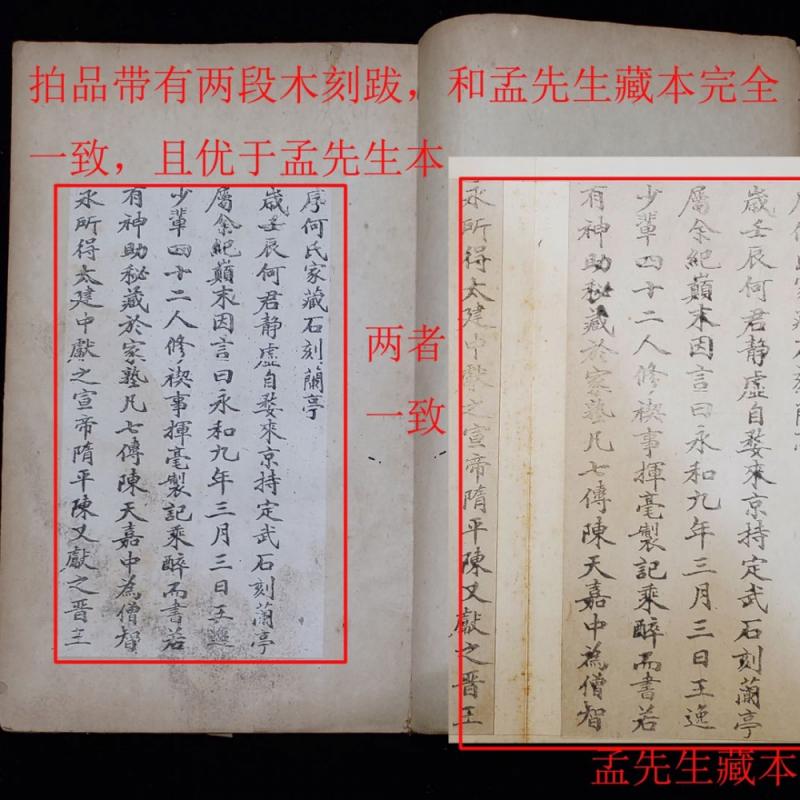 拍品带有两段木刻跋，和孟先生藏本完全
一致，且优于孟先生本
序何氏家藏石刻蘭亭
歲壬辰何君静虛自婺來京持定武石刻蘭亭
屬余紀巔末因言曰永和九年三月三日王逸
少輩四十二人修禊事揮毫製記乘醉而書若
有神助秘藏於家塾凡七傳陳天嘉中為僧智
永所得太建中獻之宣帝隋平陳又獻之晋王
两者
一致
歲壬辰何君静虛自婺來京持定武石刻蘭亭
屬余紀巔末因言曰永和九年三月三日王逸
少輩四十二人修禊事揮毫製記乘醉而書若
有神助秘藏於家塾凡七傳陳天嘉中為僧智
永所得太建中獻之宣帝隋平陳又獻之晋王
孟先生藏本